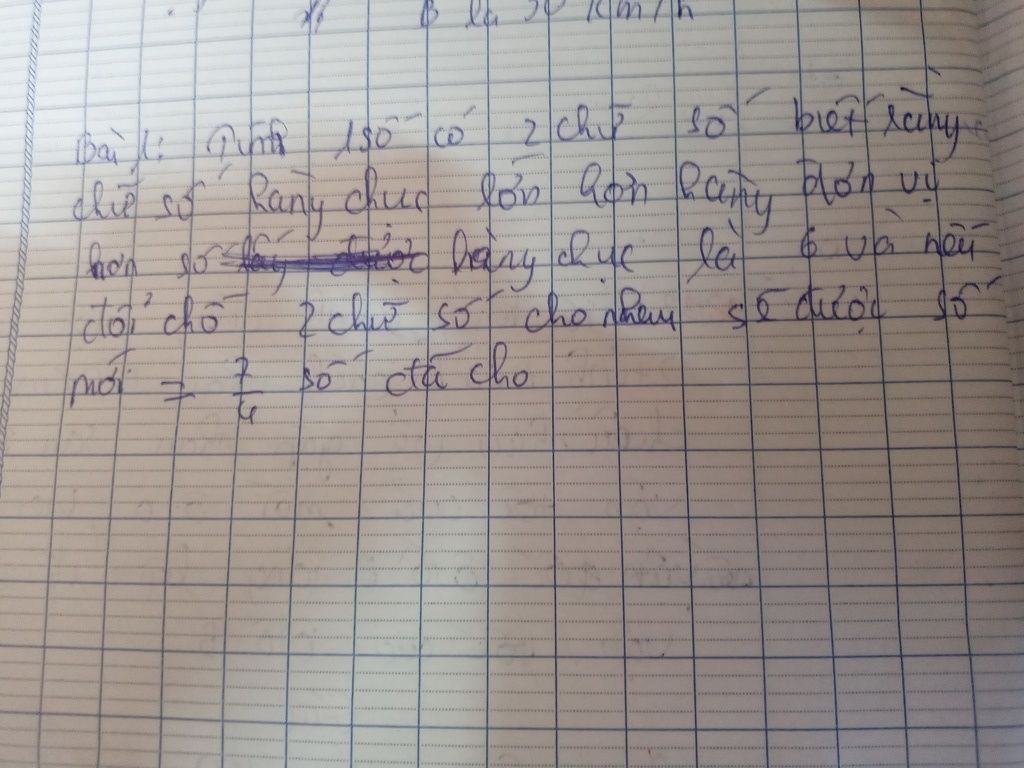 B là 30 km/h
Bài 1: Tính 1 số có 2 chữ số biết rằng
chữ số hàng chục lớn hơn hàng đơn vị
hơn số hàng chục là 6 và nếu
đổi chỗ 2 chữ số cho nhau sẽ được số
mới = 7/4 số đã cho